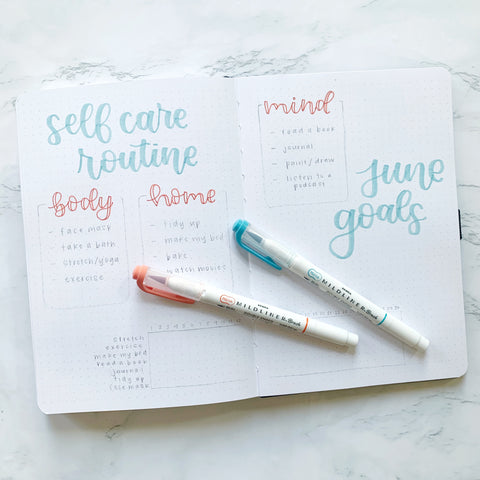 self care
routine
body
- face mask
- take a bath
- stretch/yoga
- exercise
home
- tidy up
- make my bed
- bake
- watch movies
mind
- read a book
- journal
- paint/draw
- listen to a
podcast
june
goals
MILDLINER
MILDLINER
stretch
exercise
make my bed
read a book
journal
tidy up
face mask